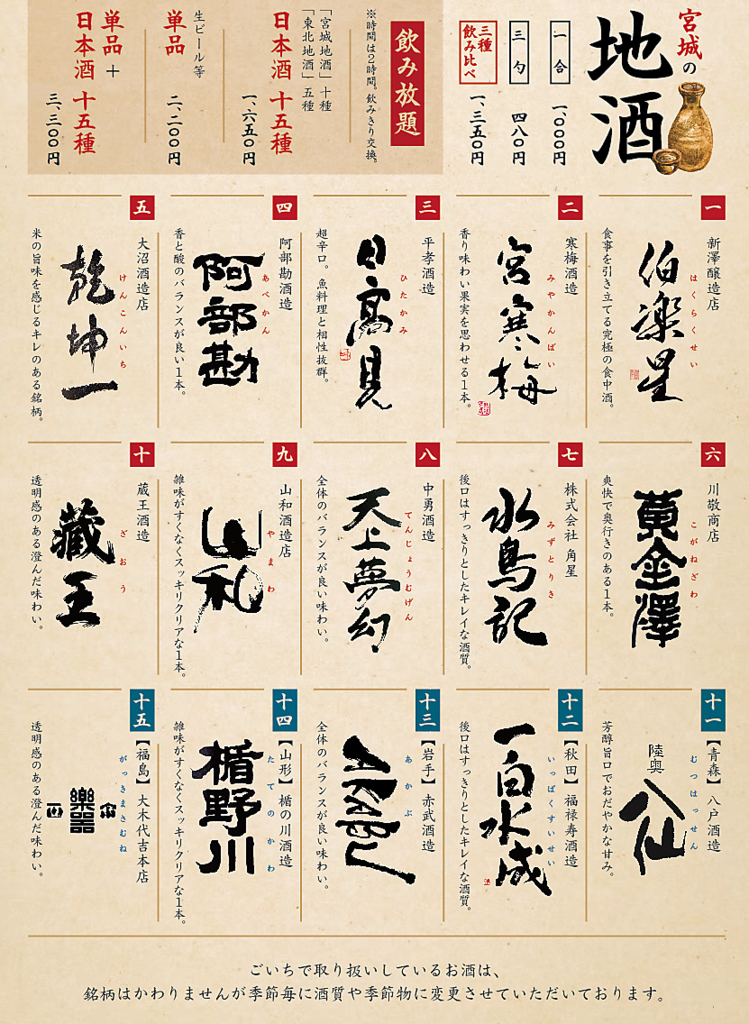 宮城の
地酒
一合
一、〇〇〇円
三勺
四八〇円
三種
飲み比べ
一、三五〇円
飲み放題
※時間は2時間。飲みきり交換。
「宮城地酒」十種
「東北地酒」五種
日本酒 十五種
一、六五〇円
生ビール等
単品
二、二〇〇円
単品 +
日本酒 十五種
三、三〇〇円
一
新澤醸造店
はくらくせい
伯楽星
食事を引き立てる究極の食中酒。
二
寒梅酒造
みやかんばい
宮寒梅
香り味わい果実を思わせる1本。
三
平孝酒造
ひたかみ
日高見
超辛口。魚料理と相性抜群。
四
阿部勘酒造
あべかん
阿部勘
香と酸のバランスが良い1本。
五
大沼酒造店
けんこんいち
乾坤一
米の旨味を感じるキレのある銘柄。
六
川敬商店
こがねざわ
黄金澤
爽快で奥行きのある1本。
七
株式会社 角星
みずとりき
水鳥記
後口はすっきりとしたキレイな酒質。
八
中勇酒造
てんじょうむげん
天上夢幻
全体のバランスが良い味わい。
九
山和酒造店
やまわ
山和
雑味がすくなくスッキリクリアな1本。
十
蔵王酒造
ざおう
蔵王
透明感のある澄んだ味わい。
十一
【青森】八戸酒造
むつはっせん
陸奥
八仙
芳醇旨口でおだやかな甘み。
十二
【秋田】福禄寿酒造
いっぱくすいせい
一白水成
後口はすっきりとしたキレイな酒質。
十三
【岩手】赤武酒造
あかぶ
AKABU
全体のバランスが良い味わい。
十四
【山形】楯の川酒造
たてのかわ
楯野川
雑味がすくなくスッキリクリアな1本。
十五
【福島】大木代吉本店
がっきまさむね
樂器
透明感のある澄んだ味わい。
ごいちで取り扱いしているお酒は、
銘柄はかわりませんが季節毎に酒質や季節物に変更させていただいております。